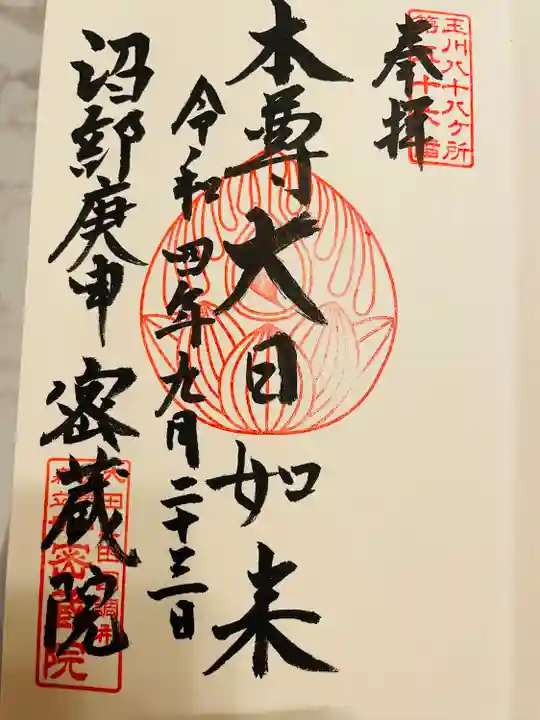 玉川八十八ケ所
奉拝
本尊大日如来
令和四年九月二十三日
沼部庚申 密蔵院
密蔵院